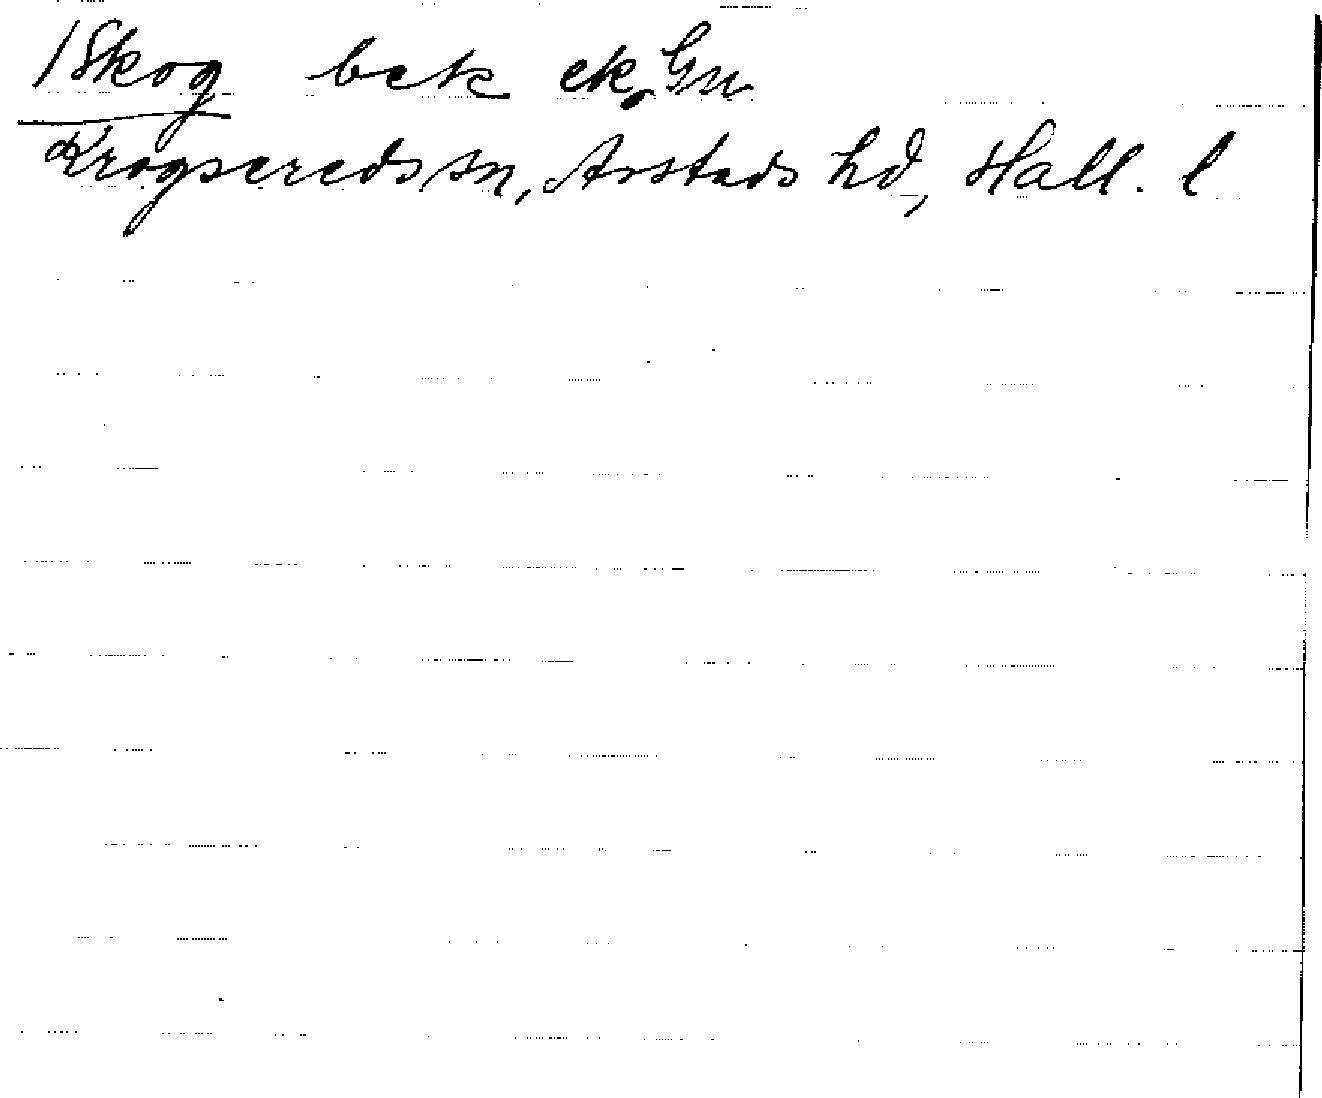 1 Skog bek ek. Gn
Krogsereds sn, Årstads hd, Hall. l